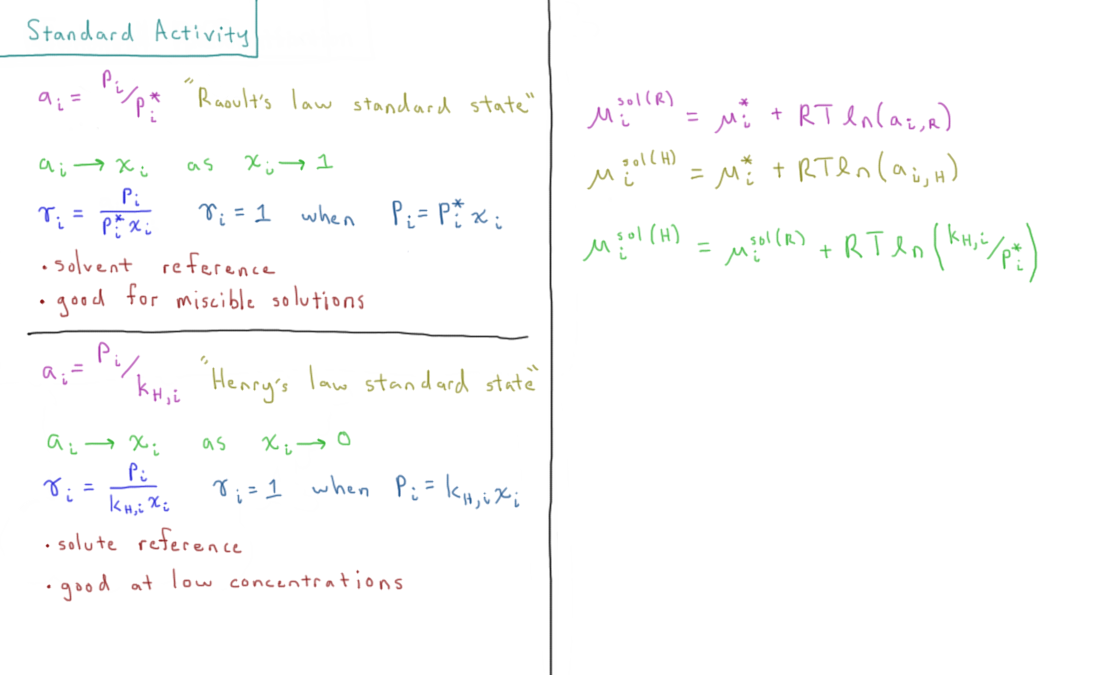 Standard Activity
a_i = P_i/P_i^* "Raoult's law standard state"
a_i → x_i as x_i → 1
γ_i = P_i/(P_i^* x_i) γ_i = 1 when P_i = P_i^* x_i
• solvent reference
• good for miscible solutions
a_i = P_i/k_{H,i} "Henry's law standard state"
a_i → x_i as x_i → 0
γ_i = P_i/(k_{H,i} x_i) γ_i = 1 when P_i = k_{H,i} x_i
• solute reference
• good at low concentrations
μ_i^{sol(R)} = μ_i^* + RT ln(a_{i,R})
μ_i^{sol(H)} = μ_i^* + RT ln(a_{i,H})
μ_i^{sol(H)} = μ_i^{sol(R)} + RT ln(k_{H,i}/P_i^*)